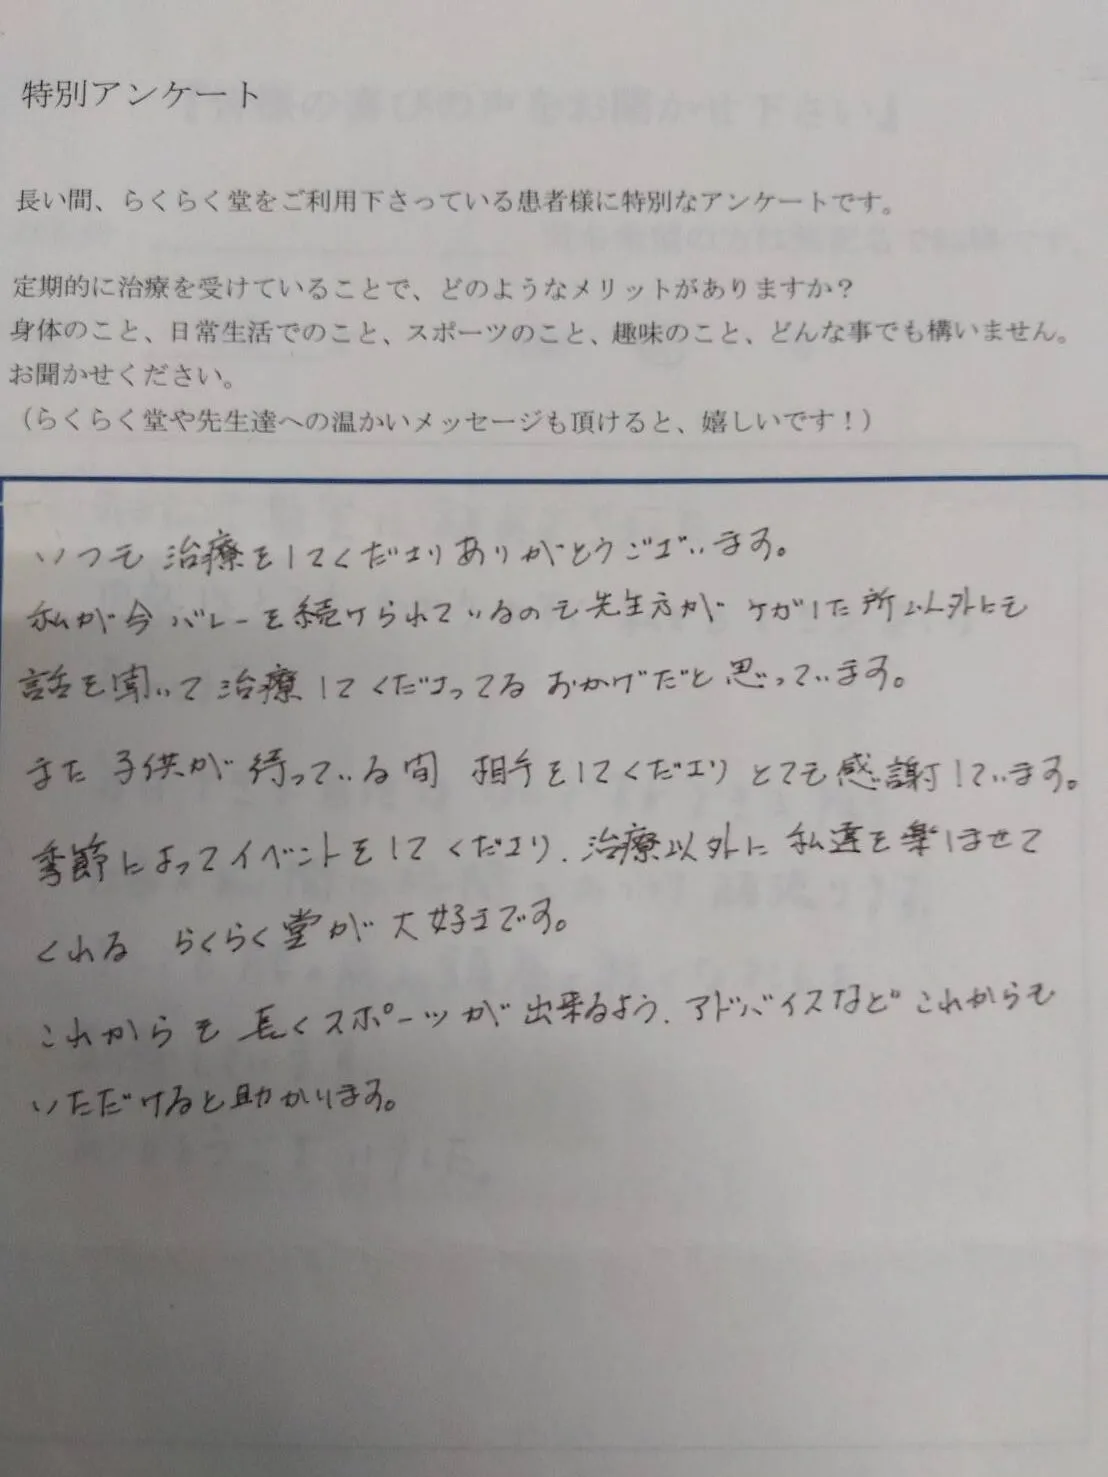 特別アンケート
長い間、らくらく堂をご利用下さっている患者様に特別なアンケートです。
定期的に治療を受けていることで、どのようなメリットがありますか？
身体のこと、日常生活でのこと、スポーツのこと、趣味のこと、どんな事でも構いません。
お聞かせください。
（らくらく堂や先生達への温かいメッセージも頂けると、嬉しいです！）
いつも 治療をしてくださりありがとうございます。
私が今バレーを続けられているのも先生方が ケガした所以外にも
話を聞いて治療してくださってる おかげだと思っています。
また 子供が 待っている間 相手をしてくださり とても感謝しています。
季節によってイベントをしてくださり、治療以外に私達を楽しませて
くれる らくらく堂が大好きです。
これからも 長くスポーツが出来るよう、アドバイスなど これからも
いただけると助かります。